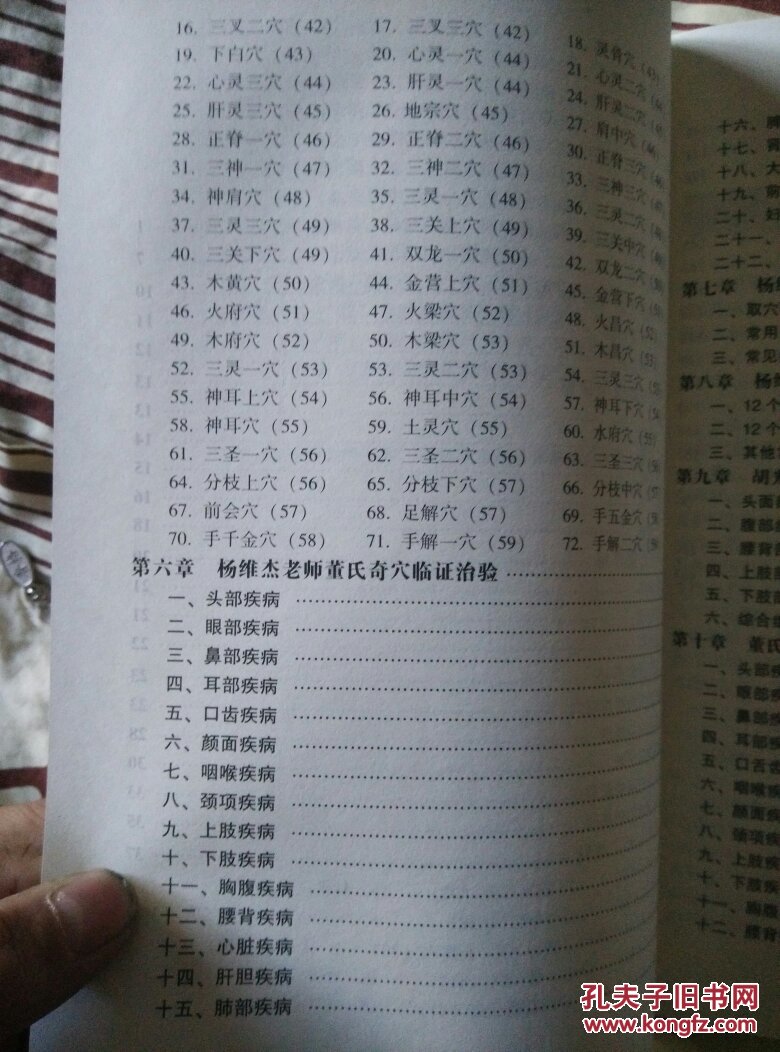 16. 三叉二穴 (42) 17. 三叉三穴 (42) 18. 灵骨穴 (43)
19. 下白穴 (43) 20. 心灵一穴 (44) 21. 心灵二穴
22. 心灵三穴 (44) 23. 肝灵一穴 (44) 24. 肝灵二穴
25. 肝灵三穴 (45) 26. 地宗穴 (45) 27. 肩中穴 (46)
28. 正脊一穴 (46) 29. 正脊二穴 (46) 30. 正脊三穴
31. 三神一穴 (47) 32. 三神二穴 (47) 33. 三神三穴
34. 神肩穴 (48) 35. 三灵一穴 (48) 36. 三灵二穴
37. 三灵三穴 (49) 38. 三关上穴 (49) 39. 三关中穴
40. 三关下穴 (49) 41. 双龙一穴 (50) 42. 双龙二穴
43. 木黄穴 (50) 44. 金营上穴 (51) 45. 金营下穴
46. 火府穴 (51) 47. 火梁穴 (52) 48. 火昌穴 (52
49. 木府穴 (52) 50. 木梁穴 (53) 51. 木昌穴 (53
52. 三灵一穴 (53) 53. 三灵二穴 (53) 54. 三灵三穴
55. 神耳上穴 (54) 56. 神耳中穴 (54) 57. 神耳下穴
58. 神耳穴 (55) 59. 土灵穴 (55) 60. 水府穴 (55)
61. 三圣一穴 (56) 62. 三圣二穴 (56) 63. 三圣三穴
64. 分枝上穴 (56) 65. 分枝下穴 (57) 66. 分枝中穴
67. 前会穴 (57) 68. 足解穴 (57) 69. 手五金穴
70. 手千金穴 (58) 71. 手解一穴 (59) 72. 手解二穴
第六章 杨维杰老师董氏奇穴临证治验
一、头部疾病
二、眼部疾病
三、鼻部疾病
四、耳部疾病
五、口齿疾病
六、颜面疾病
七、咽喉疾病
八、颈项疾病
九、上肢疾病
十、下肢疾病
十一、胸腹疾病
十二、腰背疾病
十三、心脏疾病
十四、肝胆疾病
十五、肺部疾病
十六、脾
十七、
十八、大
十九、
二十、
二十一、
二十二、
第七章 杨维
一、取穴
二、常用
三、常见
第八章 杨维
一、12个
二、12个
三、其他
第九章 胡
一、头面
二、腹部
三、腰背
四、上肢
五、下肢
六、综合
第十章 董氏
一、头部疾
二、眼部疾
三、鼻部疾
四、耳部疾
五、口齿疾
六、咽喉疾
七、颜面疾
八、颈项疾
九、上肢疾
十、下肢疾
十一、胸腹
十二、腰背
孔夫子旧书网
www.kongfz.com